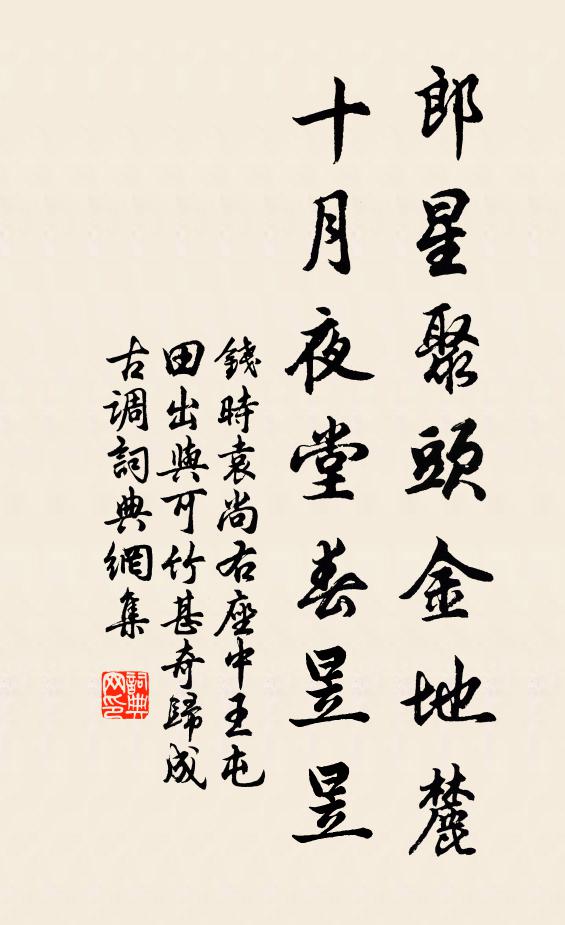 郎星聚頭金地麓
十月夜堂春昱昱
錢時袁尚右座中王屯
田出與可竹甚奇歸成
古調詞典網集
詞典
网印